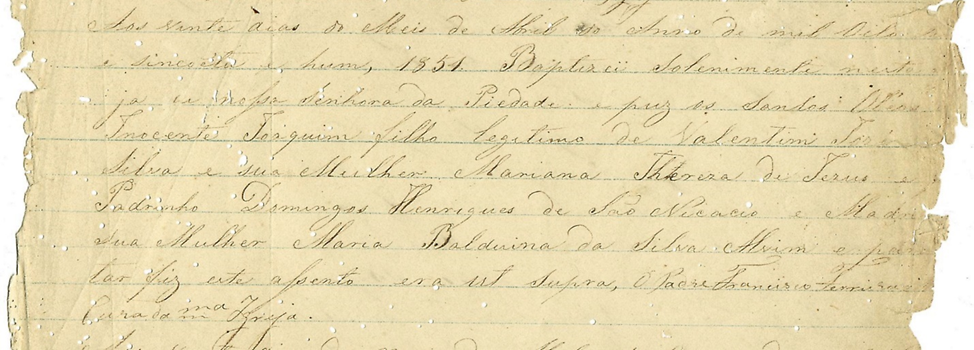 Aos vinte dias do Meis de Abril do Anno de mil Oito
e sincoeta e hum, 1851 Baptizei Solenimente nesta
ja de nossa Senhora da Piedade e puz os Santos Oleos
Inocente Joaquim filho legitimo de Valentim José
Silva e sua Mulher Mariana Thereza de Jezus e
Padrinho Domingos Henriques de São Nicacio e Madri
sua Mulher Maria Balduina da Silva Alvim e para
tar fiz este assento era ut supra, O Padre Francisco Ferreira
Cura da mma Igreja.